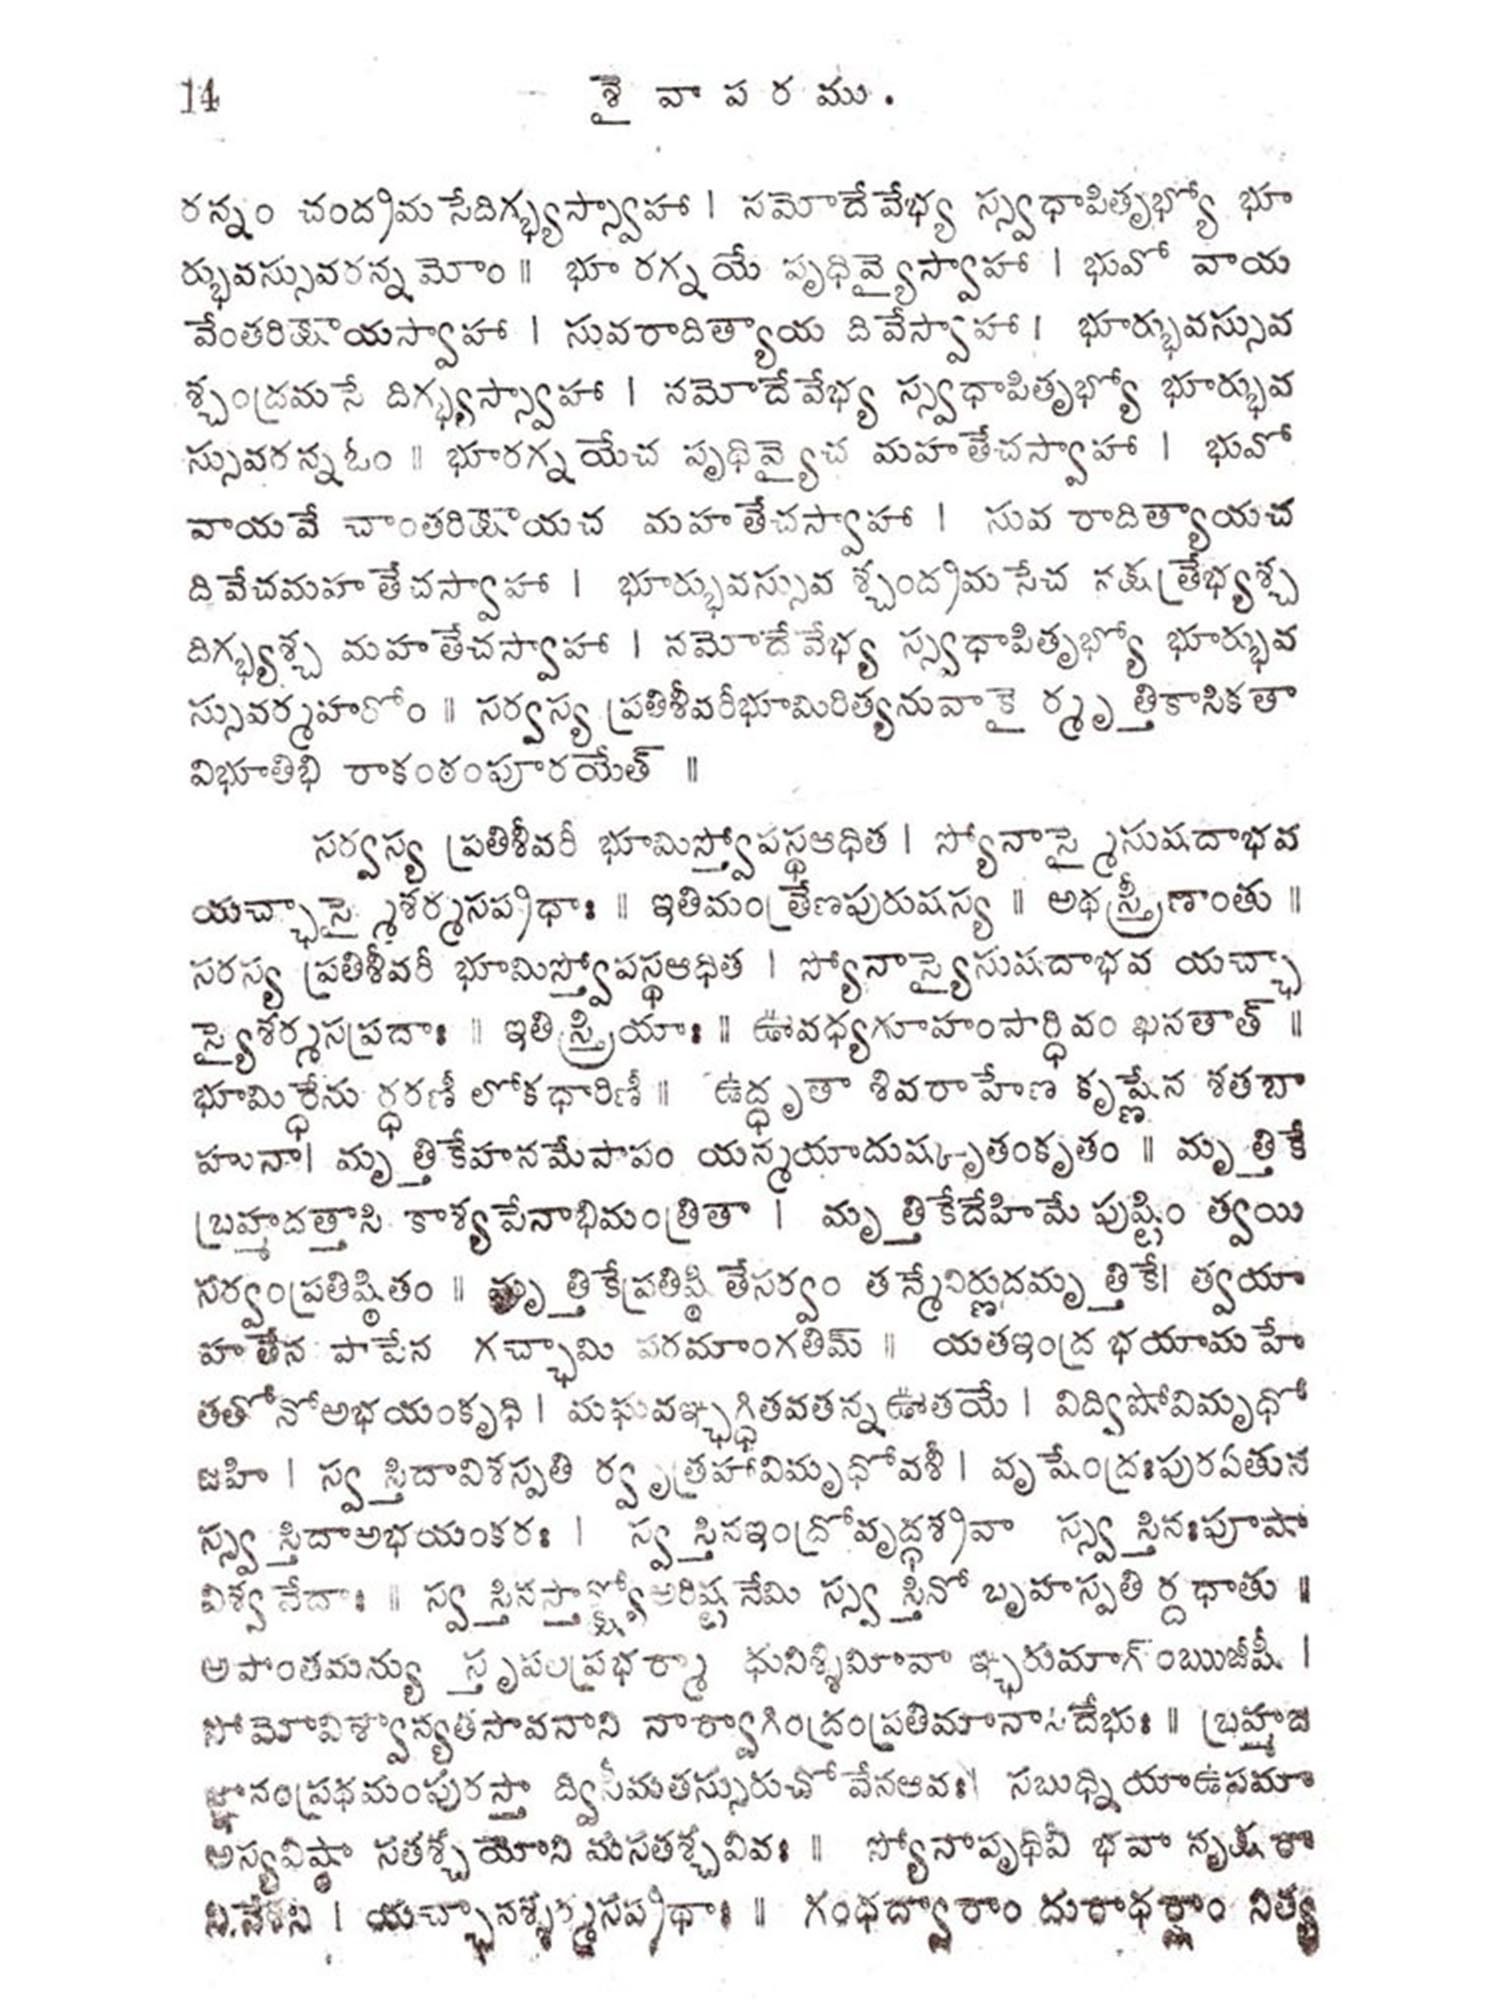 14 శై వా ప ర ము .
రన్నం చంద్రమసేదిగ్భ్యస్స్వాహా । నమోదేవేభ్య స్స్వధాపితృభ్యో భూ
ర్భువస్సువరన్నమోం ॥ భూ రగ్నయే పృథివ్యైస్వాహా । భువో వాయ
వేంతరిక్షాయస్వాహా । సువరాదిత్యాయ దివేస్వాహా । భూర్భువస్సువ
శ్చంద్రమసే దిగ్భ్యస్స్వాహా । నమోదేవేభ్య స్స్వధాపితృభ్యో భూర్భువ
స్సువరన్నఓం ॥ భూరగ్నయేచ పృథివ్యైచ మహతేచస్వాహా । భువో
వాయవే చాంతరిక్షాయచ మహతేచస్వాహా । సువ రాదిత్యాయచ
దివేచమహతేచస్వాహా । భూర్భువస్సువ శ్చంద్రమసేచ నక్షత్రేభ్యశ్చ
దిగ్భ్యశ్చ మహతేచస్వాహా । నమోదేవేభ్య స్స్వధాపితృభ్యో భూర్భువ
స్సువర్మహరోం ॥ సర్వస్య ప్రతిశీవరీభూమిరిత్యనువాకై ర్మృత్తికాసికతా
విభూతిభి రాకంఠంపూరయేత్ ॥
సర్వస్య ప్రతిశీవరీ భూమిస్త్వోపస్థఆధిత । స్యోనాస్మైసుషదాభవ
యచ్ఛాస్మై శర్మసప్రథాః ॥ ఇతిమంత్రేణపురుషస్య ॥ అథస్త్రీణాంతు ॥
సరస్య ప్రతిశీవరీ భూమిస్త్వోపస్థఆధిత । స్యోనాస్యైసుషదాభవ యచ్ఛా
స్యైశర్మసప్రదాః ॥ ఇతిస్త్రియాః ॥ ఊవధ్యగూహంపార్థివం ఖనతాత్ ॥
భూమిర్ధేను ర్ధరణీ లోకధారిణీ ॥ ఉద్ధృతా శివరాహేణ కృష్ణేన శతబా
హునా। మృత్తికేహనమేపాపం యన్మయాదుష్కృతంకృతం ॥ మృత్తికే
బ్రహ్మదత్తాసి కాశ్యపేనాభిమంత్రితా । మృత్తికేదేహిమే పుష్టిం త్వయి
సర్వంప్రతిష్ఠితం ॥ మృత్తికేప్రతిష్ఠితేసర్వం తన్మేనిర్ణుదమృత్తికే। త్వయా
హతేన పాపేన గచ్ఛామి పరమాంగతిమ్ ॥ యతఇంద్ర భయామహే
తతోనోఅభయంకృధి । మఘవఞ్ఛగ్ధితవతన్నఊతయే । విద్విషోవిమృధో
జహి । స్వస్తిదావిశస్పతి ర్వృత్రహావిమృధోవశీ । వృషేంద్రఃపురఏతున
స్స్వస్తిదాఅభయంకరః । స్వస్తినఇంద్రోవృద్ధశ్రవా స్స్వస్తినఃపూషా
విశ్వవేదాః ॥ స్వస్తినస్తార్క్ష్యోఅరిష్టనేమి స్స్వస్తినో బృహస్పతి ర్దధాతు ॥
అపాంతమన్యు స్తృపలప్రభర్మా ధునిశ్శిమీవా ఞ్ఛరుమాగ్ంఋజీషీ ।
సోమోవిశ్వాన్యతసావనాని నార్వాగింద్రంప్రతిమానానిదేభుః ॥ బ్రహ్మజ
జ్ఞానంప్రథమంపురస్తా ద్విసీమతస్సురుచోవేనఆవః। సబుధ్నియాఉపమా
అస్యవిష్ఠా సతశ్చయోని మసతశ్చవివః ॥ స్యోనాపృథివీ భవా నృక్షరా
నివేశనీ । యచ్ఛానశ్శర్మసప్రథాః ॥ గంధద్వారాం దురాధర్షాం నిత్య